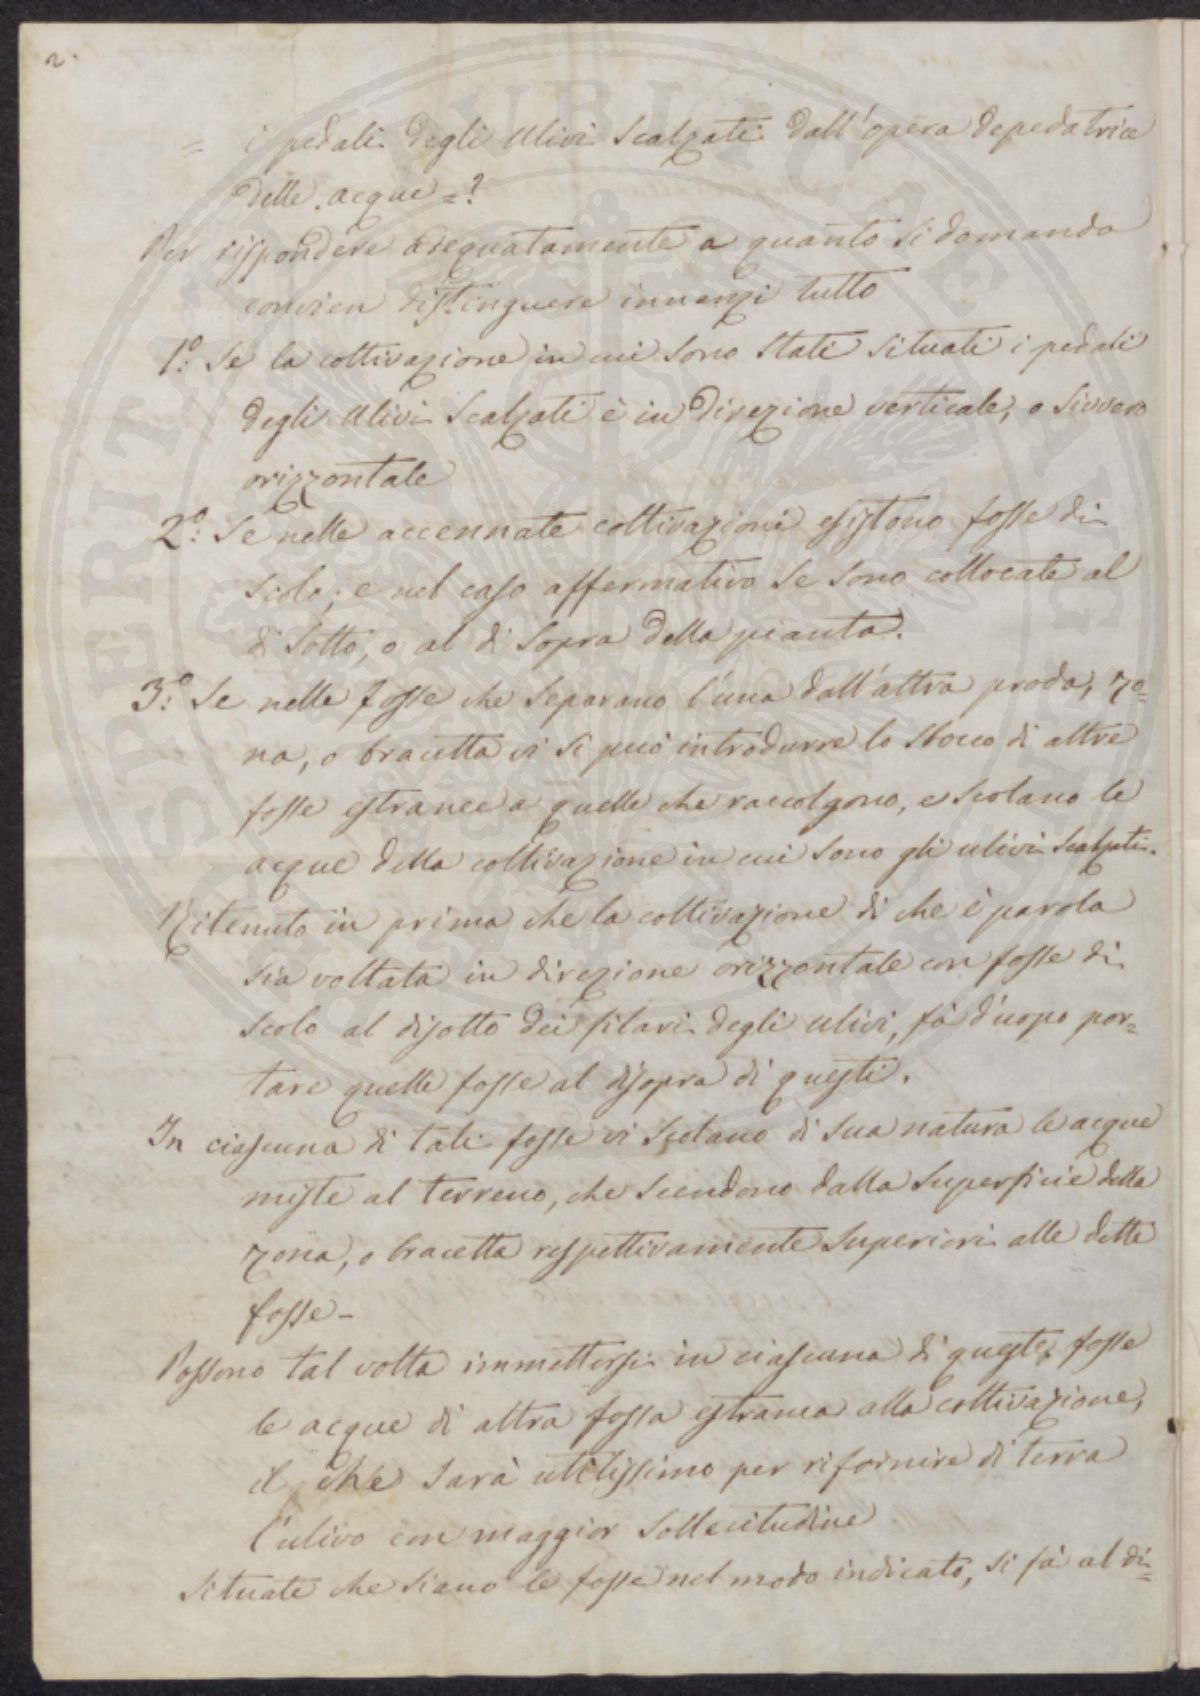 2.
= i pedali degli Ulivi Scalzati dall'opera depedatrice
delle acque =?
Per rispondere adequatamente a quanto si domanda
convien distinguere innanzi tutto
1.º Se la coltivazione in cui sono stati situati i pedali
degli Ulivi Scalzati è in direzione verticale, o sivvero
orizzontale
2.º Se nelle accennate coltivazioni esistono fosse di
scolo, e nel caso affermativo se sono collocate al
di sotto, o al di sopra della pianta.
3.º Se nelle fosse che separano l'una dall'altra proda, zo=
na, o bracetta vi si può introdurre lo sbocco di altre
fosse estranee a quelle che raccolgono, e scolano le
acque della coltivazione in cui sono gli ulivi scalzati.
Ritenuto in prima che la coltivazione di che è parola
sia voltata in direzione orizzontale con fosse di
scolo al disotto dei filari degli ulivi, fà d'uopo por=
tare quelle fosse al disopra di questi.
In ciascuna di tali fosse vi scolano di sua natura le acque
miste al terreno, che scendono dalla superficie della
zona, o bracetta respettivamente superiori alle dette
fosse -
Possono tal volta immettersi in ciascuna di queste fosse
le acque di altra fossa estranea alla coltivazione,
il che sarà utilissimo per rifornire di terra
l'ulivo con maggior sollecitudine
Situate che siano le fosse nel modo indicato, si fà al di=
PROSPERITATI PUBLICAE AUGENDAE